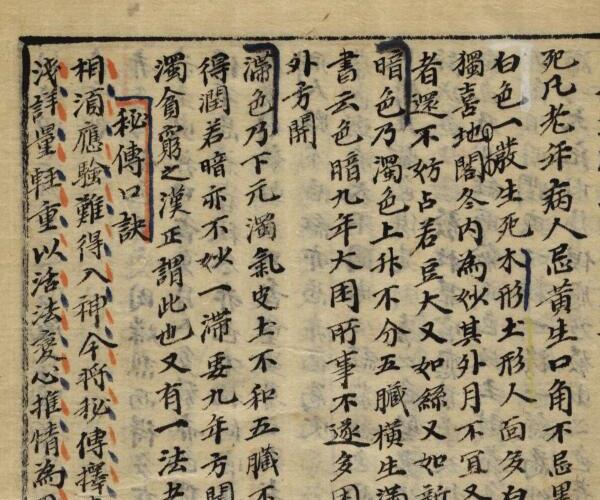 死凡老年病人忌黃生口角不忌黑
白色一嚴生死木形土形人面多白
獨喜地閣冬内為妙其外月不宜又
者還不妨占若豆大又如絲又如新
暗色乃濁色上升不分五臟橫生滿
書云色暗九年大困所事不遂多困
外方開
滯色乃下元濁氣皮土不和五臟不
得潤若暗亦不妙一滯要九年方開
濁貪窮之漢正謂此也又有一法老
秘傳口訣
相須應驗難得入神今將秘傳擇
浅詳量輕重以活法變心推情為